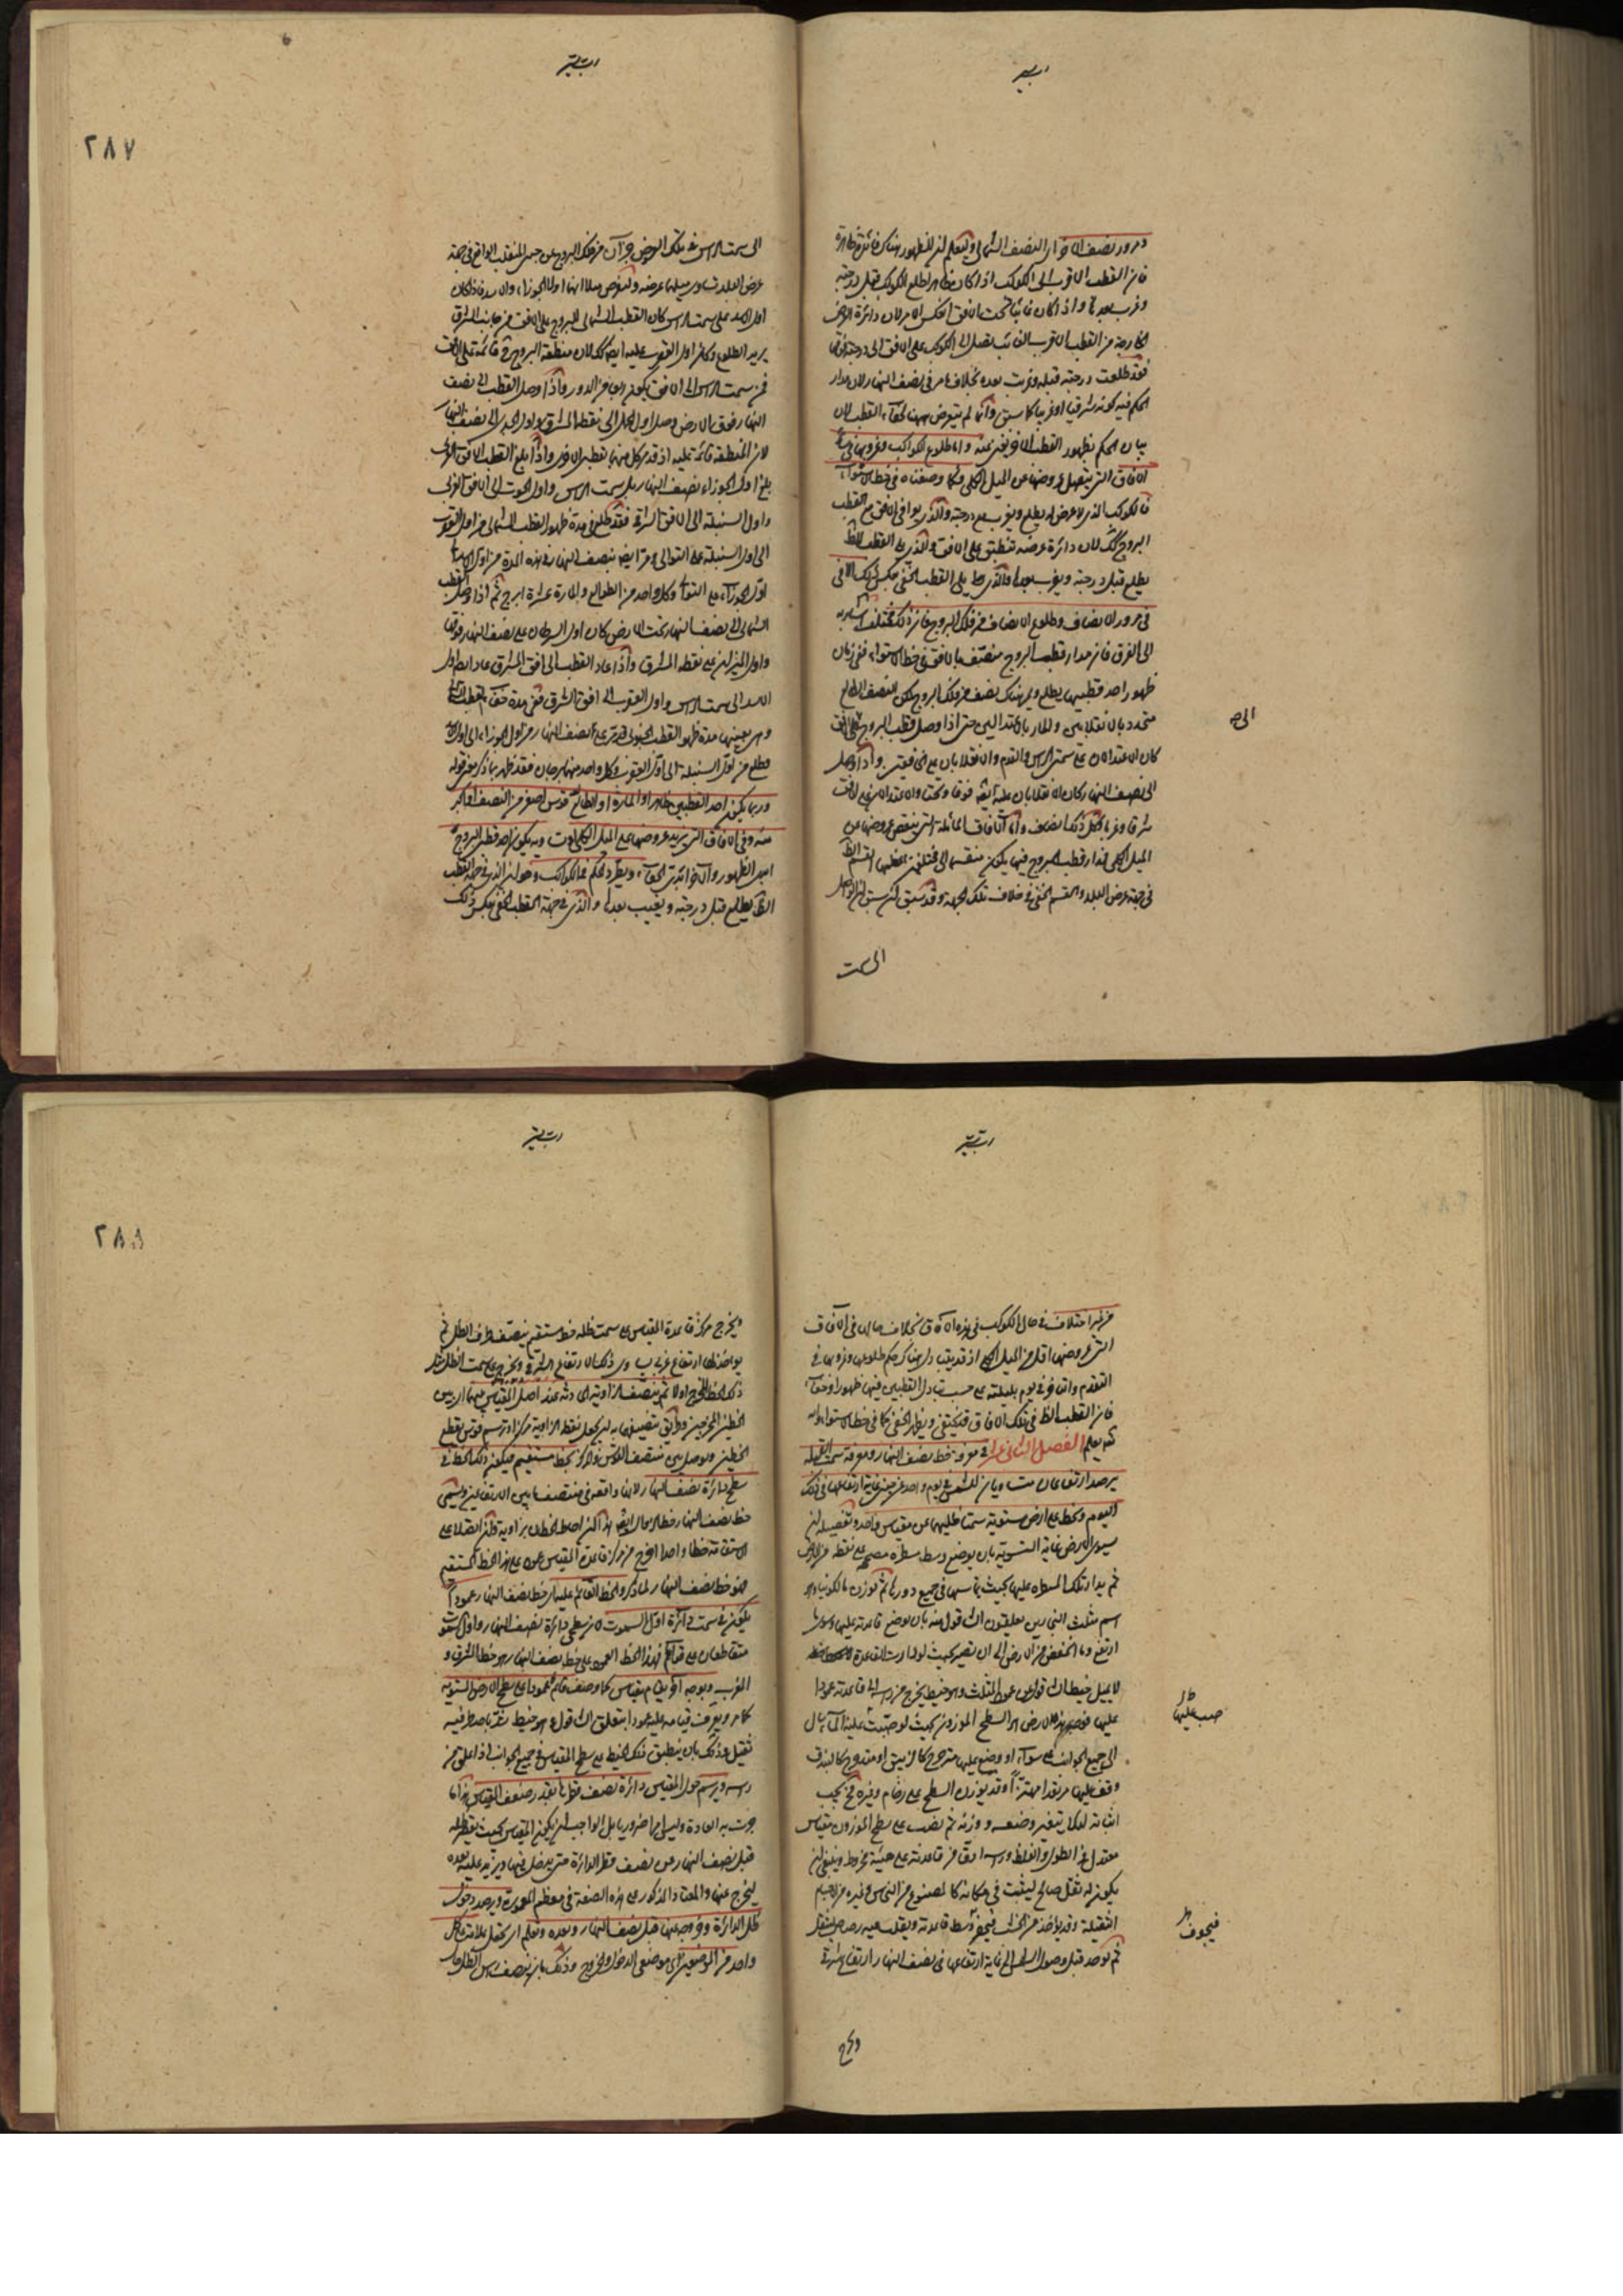 ٢٨٧
ومرور نصف
فان القطب الاقرب الى الكوكب اذا كان ظاهرا طلع الكوكب قبل درجته
وغرب بعدها واذا كان غائبا تحت الافق انعكس الامر لان دائرة العرض
الخارجة من القطب الاقرب الغائب تصل الى الكوكب على الافق
فقد طلعت درجته قبله وغربت بعده بخلاف ما مر في نصف النهار لان مدار
الحكم فيه كونه شرقيا او غربيا كما سبق وانما لم يتعرض ههنا لخفاء القطب لان
بيان الحكم بظهور القطب الآخر يغني عنه واما طلوع الكواكب وغروبها في
الآفاق التي عروضها عن الميل الكلي فكما وصفناه في خط الاستواء
فالكوكب الذي لا عرض له يطلع ويغرب مع درجته والذي يوافي الافق مع القطب
البروج كك لان دائرة عرضه تنطبق على الافق والذي يلي القطب الظ
يطلع قبل درجته ويغرب بعدها والذي يلي القطب الخفي بعكس ذلك
في مرور الانصاف وطلوع الانصاف من فلك البروج فان ذلك مختلف
الى الفرق فان مدار قطب البروج منتصف بالافق في خط الاستواء ففي زمان
ظهور احد قطبيها يطلع ويمر هناك نصف من فلك البروج لكن النصف الطالع
متحدد بالانقلابين والمار بالاعتدالين حتى اذا وصل قطب البروج
كان الاعتدالان على سمتي الراس والقدم والانقلابان على الافقين واذا وصل
الى نصف النهار كان الانقلابان عليه ايضا فوقا وتحتا والاعتدالان على الافق
شرقا وغربا واما الآفاق المائلة التي ينقص عروضها عن
الميل الكلي فمدار قطب البروج فيها يكون منقسما الى مختلفين اعظمهما القسم الظ
في جهة عرض البلد والقسم الخفي في خلاف تلك الجهة وقد سبق
الى سمت
الى سمت الراس في تلك العروض جزآن من فلك البروج عن جنبي المنقلب الواقع في جهة
عرض البلد يساوي ميلهما عرضه ولنفرض مثلا انهما اول الجوزاء والاسد فاذا كان
اول الاسد على سمت الراس كان القطب الشمالي للبروج على الافق من جانب الشرق
يريد الطلوع وكان اول العقرب عليه ايضا كك لان منطقة البروج قائمة على الافق
فمن سمت الراس الى الافق يكون ربعا من الدور واذا وصل القطب الى نصف
النهار فوق الارض وصل اول الحمل الى نقطة المشرق واول الجدي الى نصف النهار
لان المنطقة قائمة عليه واذا بلغ القطب الافق الغربي
بلغ اول الجوزاء نصف النهار بل سمت الراس واول الحوت الى الافق الغربي
واول السنبلة الى الافق الشرقي فقد طلع في مدة ظهور القطب الشمالي من اول العقرب
الى اول السنبلة على التوالي ومر ايضا بنصف النهار في هذه المدة من اول الاسد
اول الجوزاء على التوا وكل واحد من الطوالع والمارة عشرة ابرج ثم اذا وصل القطب
الشمالي الى نصف النهار تحت الارض كان اول السرطان على نصف النهار فوقها
واول الميزان على نقطة المشرق واذا عاد القطب الى افق المشرق عاد ايضا اول
الاسد الى سمت الراس واول العقرب الى افق الشرق ففي مدة خفاء القطب
وهي بعينها مدة ظهور القطب الجنوبي قد مر على نصف النهار من اول الجوزاء الى اول الاسد
وطلع من اول السنبلة الى اول العقرب وكل واحد منهما برجان فقد ظهر بما ذكر معنى قوله
وربما يكون احد القطبين ظاهرا والمارة او الطالع قوس اصغر من النصف او اكبر
منه وفي الآفاق التي يزيد عروضها على الميل الكلي يكون احد قطبي البروج
ابدي الظهور والآخر ابدي الخفاء ويطرد الحكم في الكواكب وهو ان الذي في جهة القطب
الظ يطلع قبل درجته ويغيب بعدها والذي في جهة القطب الخفي بعكس ذلك
٢٨٨
من غير اختلاف في حال الكوكب في هذه الآفاق بخلاف حاله في الآفاق
التي عروضها اقل من الميل الكلي
التقدم والتاخر في يوم بليلته على حسب تبادل القطبين فيها ظهورا وخفاء
فان القطب الظ في تلك الآفاق قد يختفي ويظهر الخفي كما في خط الاستواء
الفصل الثاني عشر في معرفة خط نصف النهار ومعرفة سمت القبلة
يرصد ارتفاعان متساويان للشمس في يوم واحد عن جنبي غاية ارتفاعها في ذلك
اليوم ونخط على ارض مستوية سمتا ظليهما عن مقياس واحد وتفصيله ان
يسوى الارض غاية التسوية بان يوضع وسط مسطرة مصححة على نقطة من الارض
ثم يدار تلك المسطرة عليها بحيث تماسها في جميع دورها ثم توزن بالكونيا وهو
اسم مثلث النجارين يعلقون الشاقول منه بان توضع قاعدته عليها ويسوى ما
ارتفع وما انخفض من الارض الى ان يصير بحيث لو دارت القاعدة
لا يميل خيط الشاقول عن عمود المثلث وهو خيط يخرج من راسه الى قاعدته عمودا
عليها الارض او السطح الموزون بحيث لو صب عليه الماء سال
الى جميع الجوانب على سواء او وضع عليها متدحرج كالزيبق او متدحرج كالبندق
وقف عليها مرتعدا مهتزا وقد يوزن السطح على رخام وغيره مما يجب
اثباته لئلا يتغير وضعه ووزنه ثم نصب على سطح الموزون مقياس
معتدل في الطول والغلظ وراسه ادق من قاعدته على هيئة مخروط وينبغي ان
يكون له ثقل صالح ليثبت في مكانه كالمصنوع من النحاس وغيره من الاجسام
الثقيلة وقد يؤخذ من الخشب فيجوف وسط قاعدته ويقلب فيه رصاص ليثقل
ثم يوجد قبل وصول الشمس الى غاية ارتفاعها في نصف النهار ارتفاع شرقي
صب عليها
فيجوف
ويخرج
ويخرج من مركز قاعدة المقياس على سمت ظله خط مستقيم ينصف طرف الظل ثم
يؤخذ لها ارتفاع غربي يساوي ذلك الارتفاع الشرقي ويخرج على سمت الظل مثل
ذلك الخط المخرج اولا ثم ينصف الزاوية الحادثة عند اصل المقياس فيما بين
الخطين المخرجين وطريق تنصيفها به ان يجعل نقطة الزاوية مركزا ويرسم قوس يقطع
الخطين ويوصل بين منتصف القوس والمركز بخط مستقيم فيكون ذلك الخط في
سطح دائرة نصف النهار لانها واقعة في منتصف ما بين الارتفاعين ويسمى
خط نصف النهار وخط الزوال ايضا هذا اذا احاط الخطان بزاوية وان اتصلا على
الاستقامة خطا واحدا اخرج من مركز قاعدة المقياس عمود على هذا الخط المستقيم
فهو خط نصف النهار لما ذكر والخط القائم عليه اي خط نصف النهار عمودا
يكون في سمت دائرة اول السموت لان سطحي دائرة نصف النهار واول السموت
متقاطعان على قوائم فهذا الخط العمود على خط نصف النهار هو خط المشرق و
المغرب وبوجه آخر يقام مقياس كما وصف قائم عمودا على سطح الارض المستوية
كما مر ويعرف قيامه عليه عمودا بتعلق الشاقول وهو خيط شد باحد طرفيه
ثقيل وذلك بان ينطبق ذلك الخيط على سطح المقياس في جميع الجوانب اذا علق من
راسه ويرسم حول المقياس دائرة نصف قطرها بقدر ضعف المقياس هذا ما
جرت به العادة وليس امرا ضروريا بل الواجب ان يكون المقياس بحيث يقصر ظله
قبل نصف النهار عن نصف قطر الدائرة حتى يدخل فيها ويزيد عليه بعده
ليخرج عنها والمقدار المذكور على هذه الصفة في معظم المعمورة ويرصد دخول
ظل الدائرة وخروجه عنها قبل نصف النهار وبعده ويعلم
واحد من الموضعين اي موضعي الدخول والخروج وذلك بان ينصف راس الظل